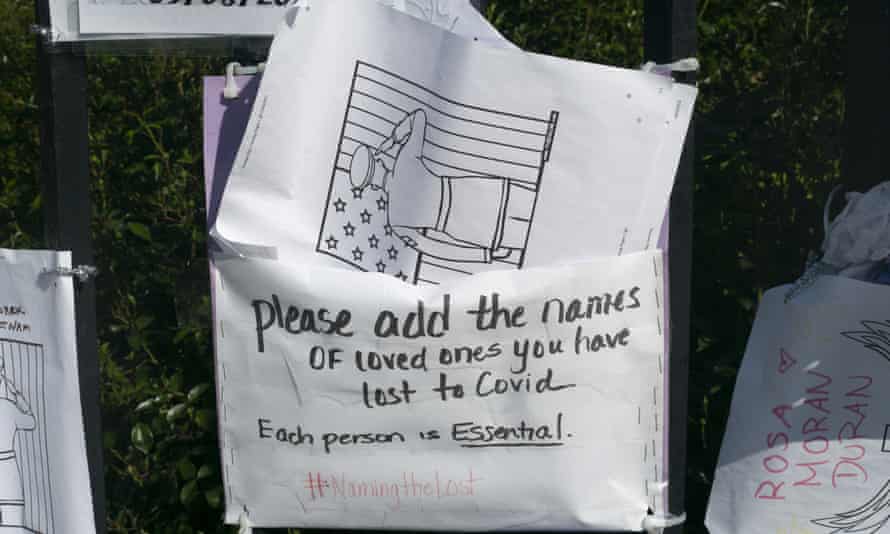 Please add the names
OF loved ones you have
lost to Covid
Each person is Essential.
#NamingtheLost
ROSA
MORAN
DURAN